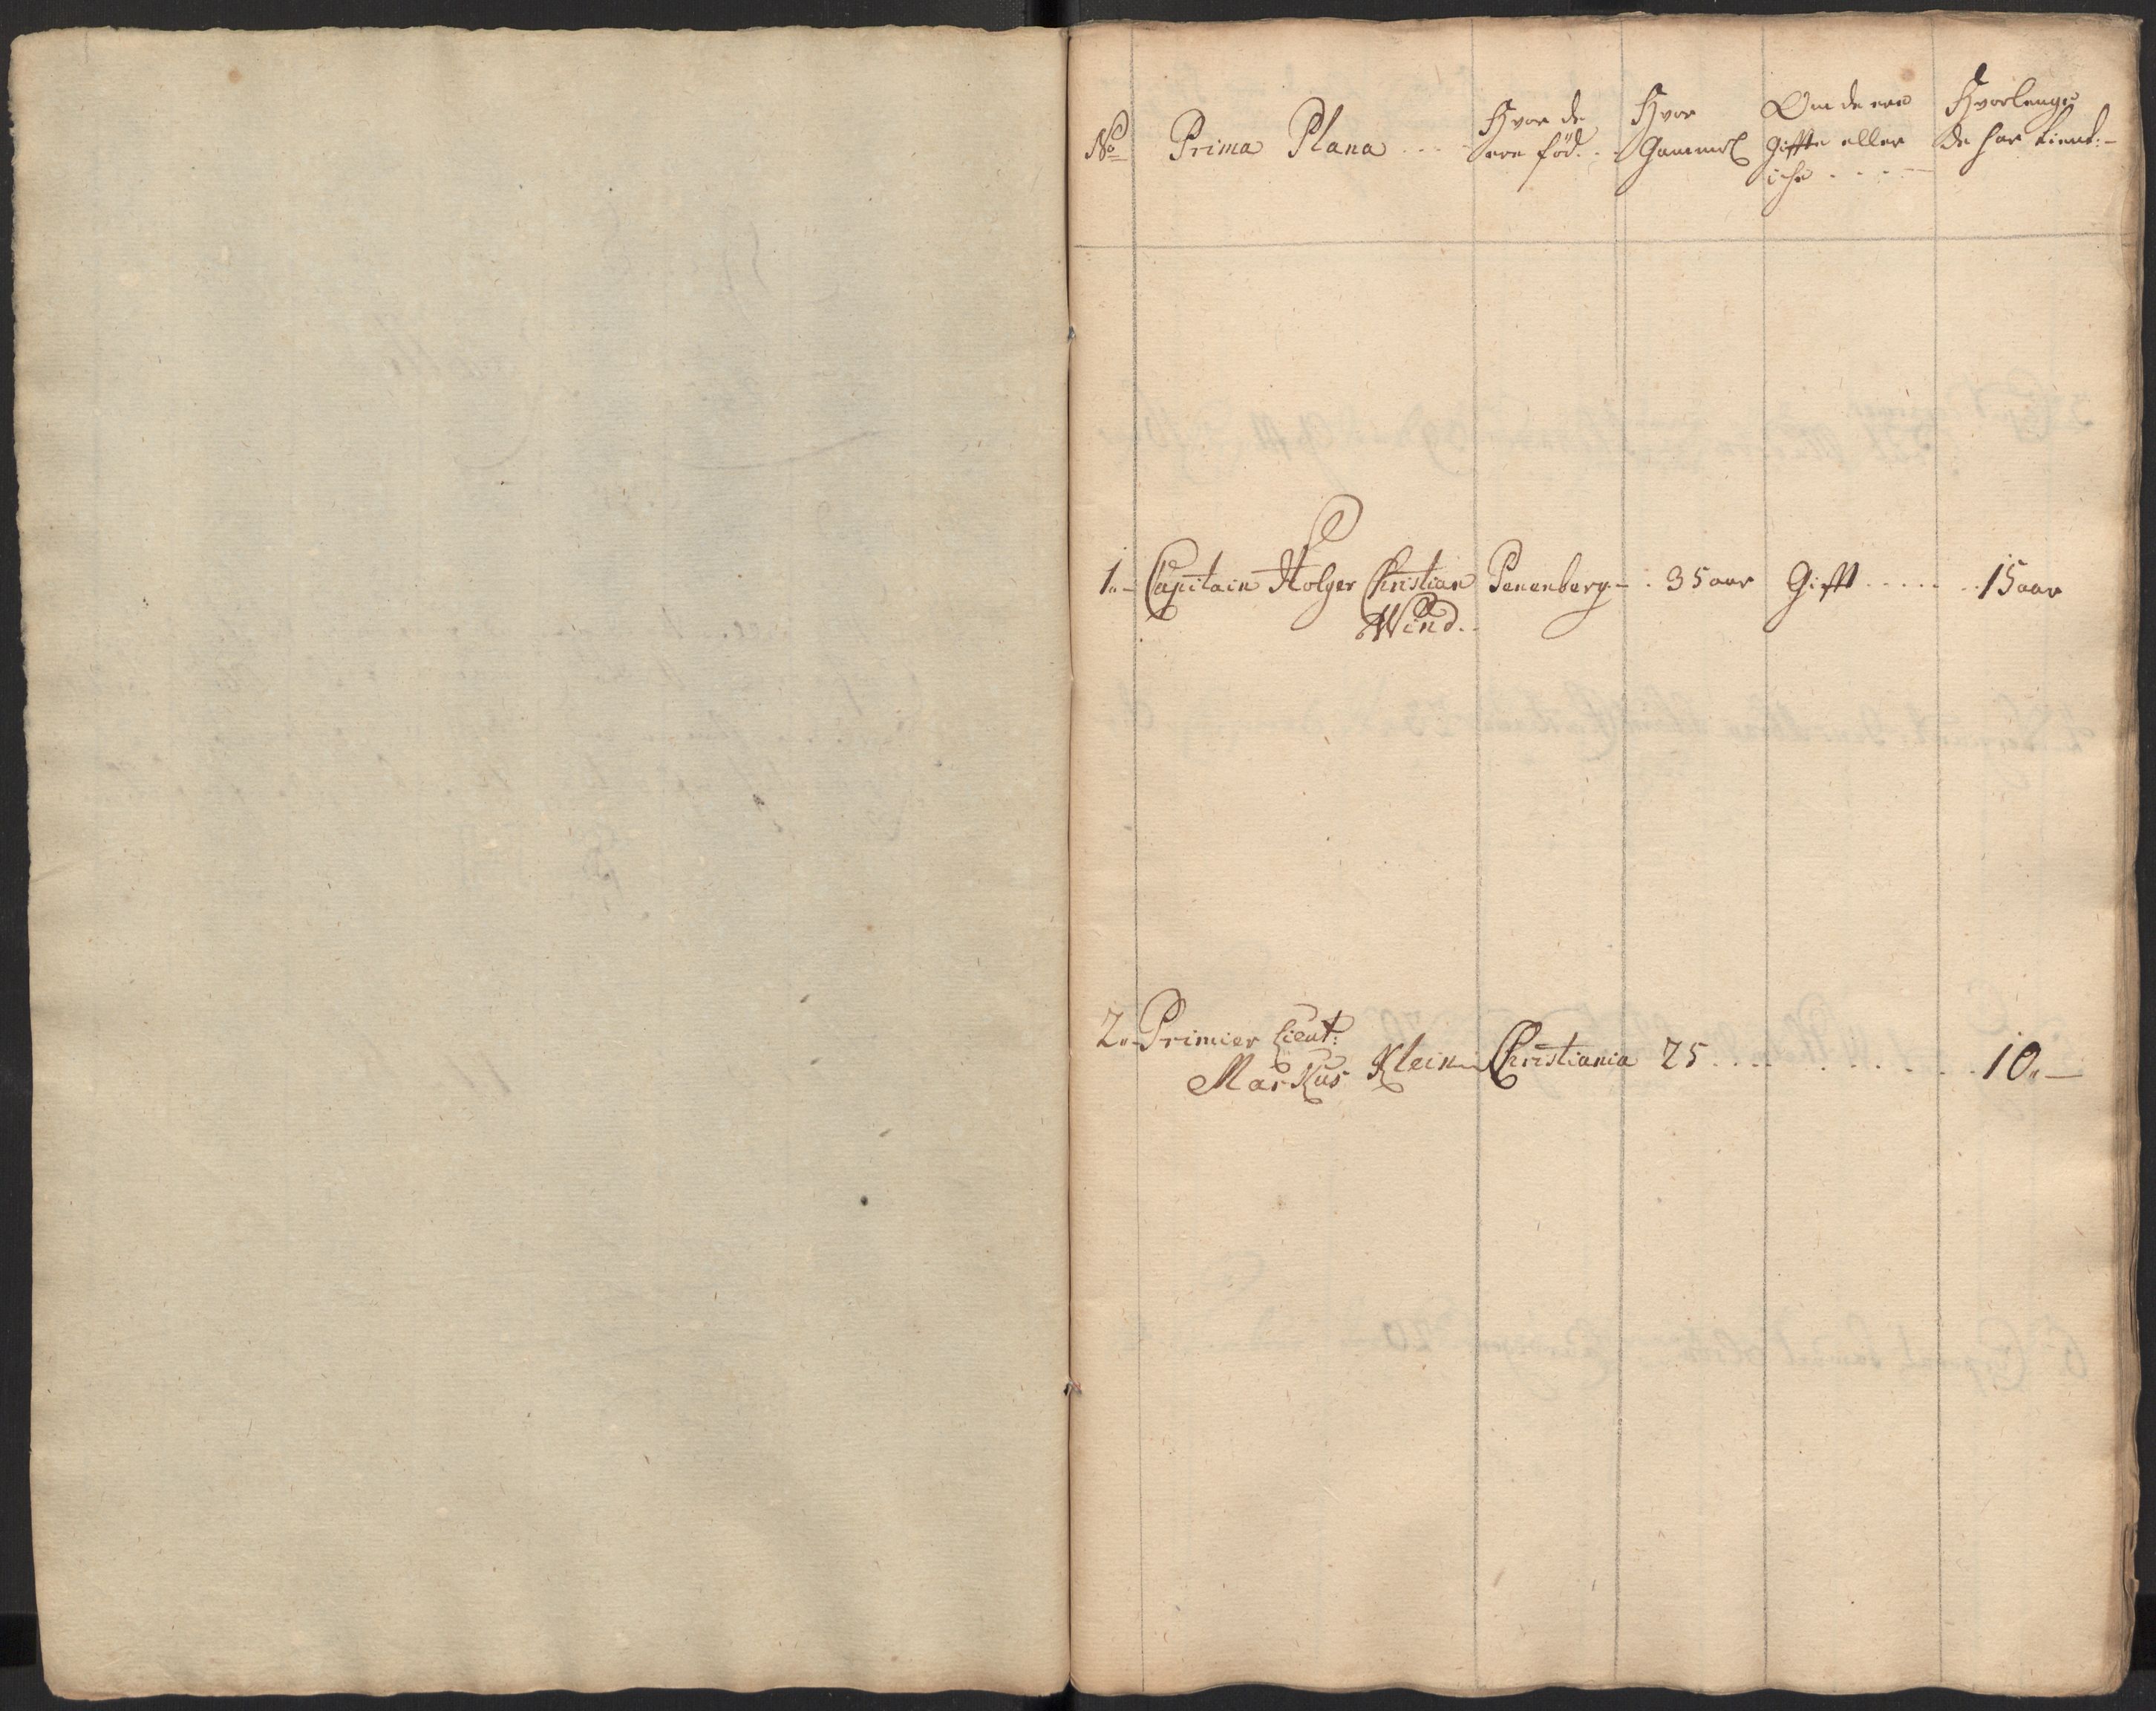 No Prima Plana ... Hvor de ere fød. .. Hvor Gammel Om de ere Giffte eller iche .... Hvorlenge de har tient:-
1.- Capitain Holger Christian Wind .. Penenberg - . 35 aar Gifft ..... 15 aar
2.- Primier Lieut: Markus Klein - Christiania 25 ......... 10.-